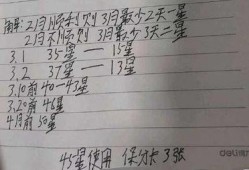 2月顺利则3月最少2天一星
2月不顺则3月最少3天二星
3.1 35星 — 15星
3.2 37星 — 13星
3.10前40—43星
3.20前46星
4月前50星
45星使用 保分卡3张